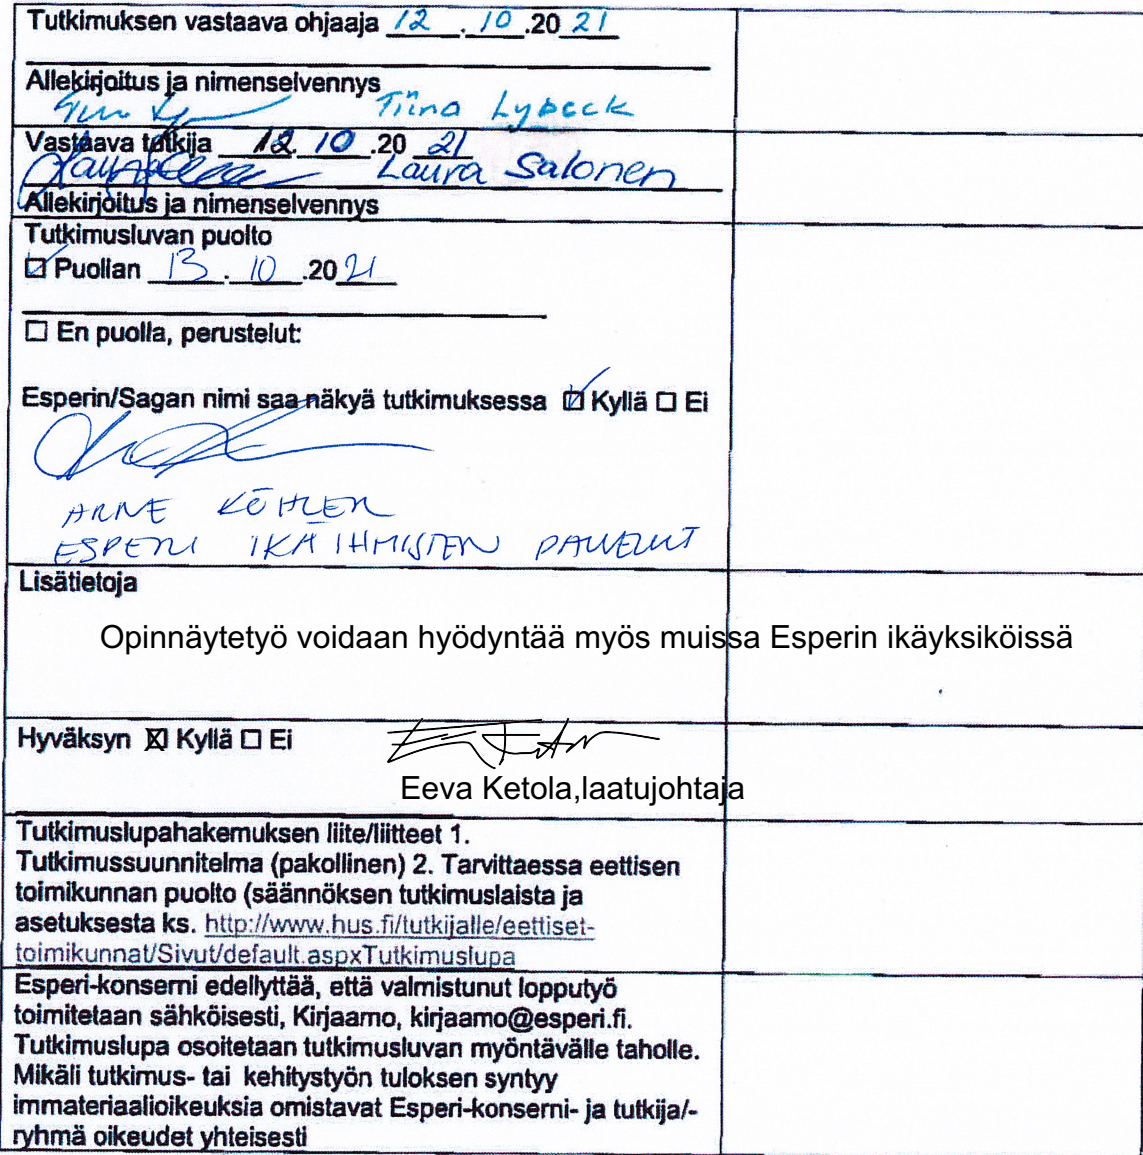 Tutkimuksen vastaava ohjaaja 12 . 10 .20 21
Allekirjoitus ja nimenselvennys
Tiina Lybeck
Vastaava tutkija 12. 10 .20 21
Laura Salonen
Allekirjoitus ja nimenselvennys
Tutkimusluvan puolto
☑ Puollan 13 . 10 .20 21
☐ En puolla, perustelut:
Esperin/Sagan nimi saa näkyä tutkimuksessa ☑ Kyllä ☐ Ei
ARNE KÖHLER
ESPERI IKÄIHMISTEN PALVELUT
Lisätietoja
Opinnäytetyö voidaan hyödyntää myös muissa Esperin ikäyksiköissä
Hyväksyn ☒ Kyllä ☐ Ei
Eeva Ketola,laatujohtaja
Tutkimuslupahakemuksen liite/liitteet 1.
Tutkimussuunnitelma (pakollinen) 2. Tarvittaessa eettisen
toimikunnan puolto (säännöksen tutkimuslaista ja
asetuksesta ks. http://www.hus.fi/tutkijalle/eettiset-
toimikunnat/Sivut/default.aspxTutkimuslupa
Esperi-konserni edellyttää, että valmistunut lopputyö
toimitetaan sähköisesti, Kirjaamo, kirjaamo@esperi.fi.
Tutkimuslupa osoitetaan tutkimusluvan myöntävälle taholle.
Mikäli tutkimus- tai kehitystyön tuloksen syntyy
immateriaalioikeuksia omistavat Esperi-konserni- ja tutkija/-
ryhmä oikeudet yhteisesti